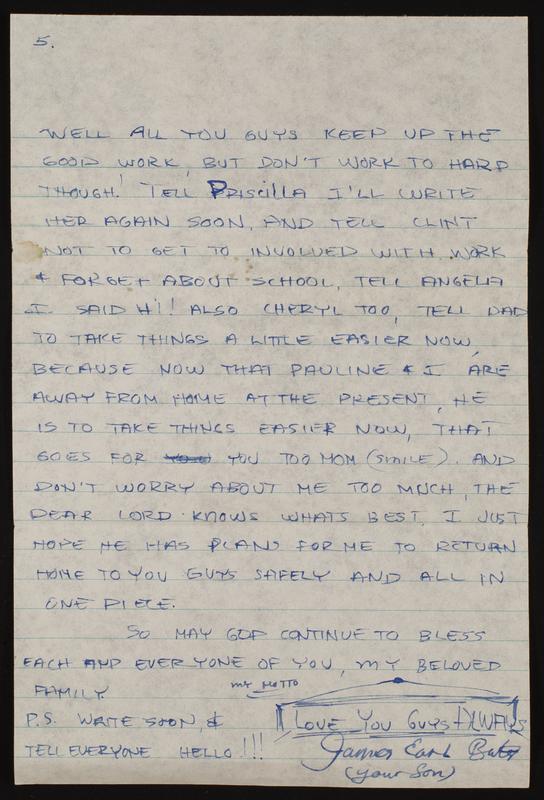 5.
WELL ALL YOU GUYS KEEP UP THE
GOOD WORK, BUT DON'T WORK TO HARD
THOUGH! TELL PRISCILLA I'LL WRITE
HER AGAIN SOON, AND TELL CLINT
NOT TO GET TO INVOLVED WITH WORK
& FORGET ABOUT SCHOOL, TELL ANGELIA
I SAID Hi! ALSO CHERYL TOO, TELL DAD
TO TAKE THINGS A LITTLE EASIER NOW,
BECAUSE NOW THAT PAULINE & I ARE
AWAY FROM HOME AT THE PRESENT, HE
IS TO TAKE THINGS EASIER NOW, THAT
GOES FOR YOU TOO MOM (SMILE). AND
DON'T WORRY ABOUT ME TOO MUCH, THE
DEAR LORD KNOWS WHATS BEST, I JUST
HOPE HE HAS PLANS FOR ME TO RETURN
HOME TO YOU GUYS SAFELY AND ALL IN
ONE PIECE.
SO MAY GOD CONTINUE TO BLESS
EACH AND EVERYONE OF YOU, MY BELOVED
FAMILY.
MY MOTTO
P.S. WRITE SOON, &
I LOVE YOU GUYS ALWAYS
TELL EVERYONE HELLO!!!
James Earl
(your Son)